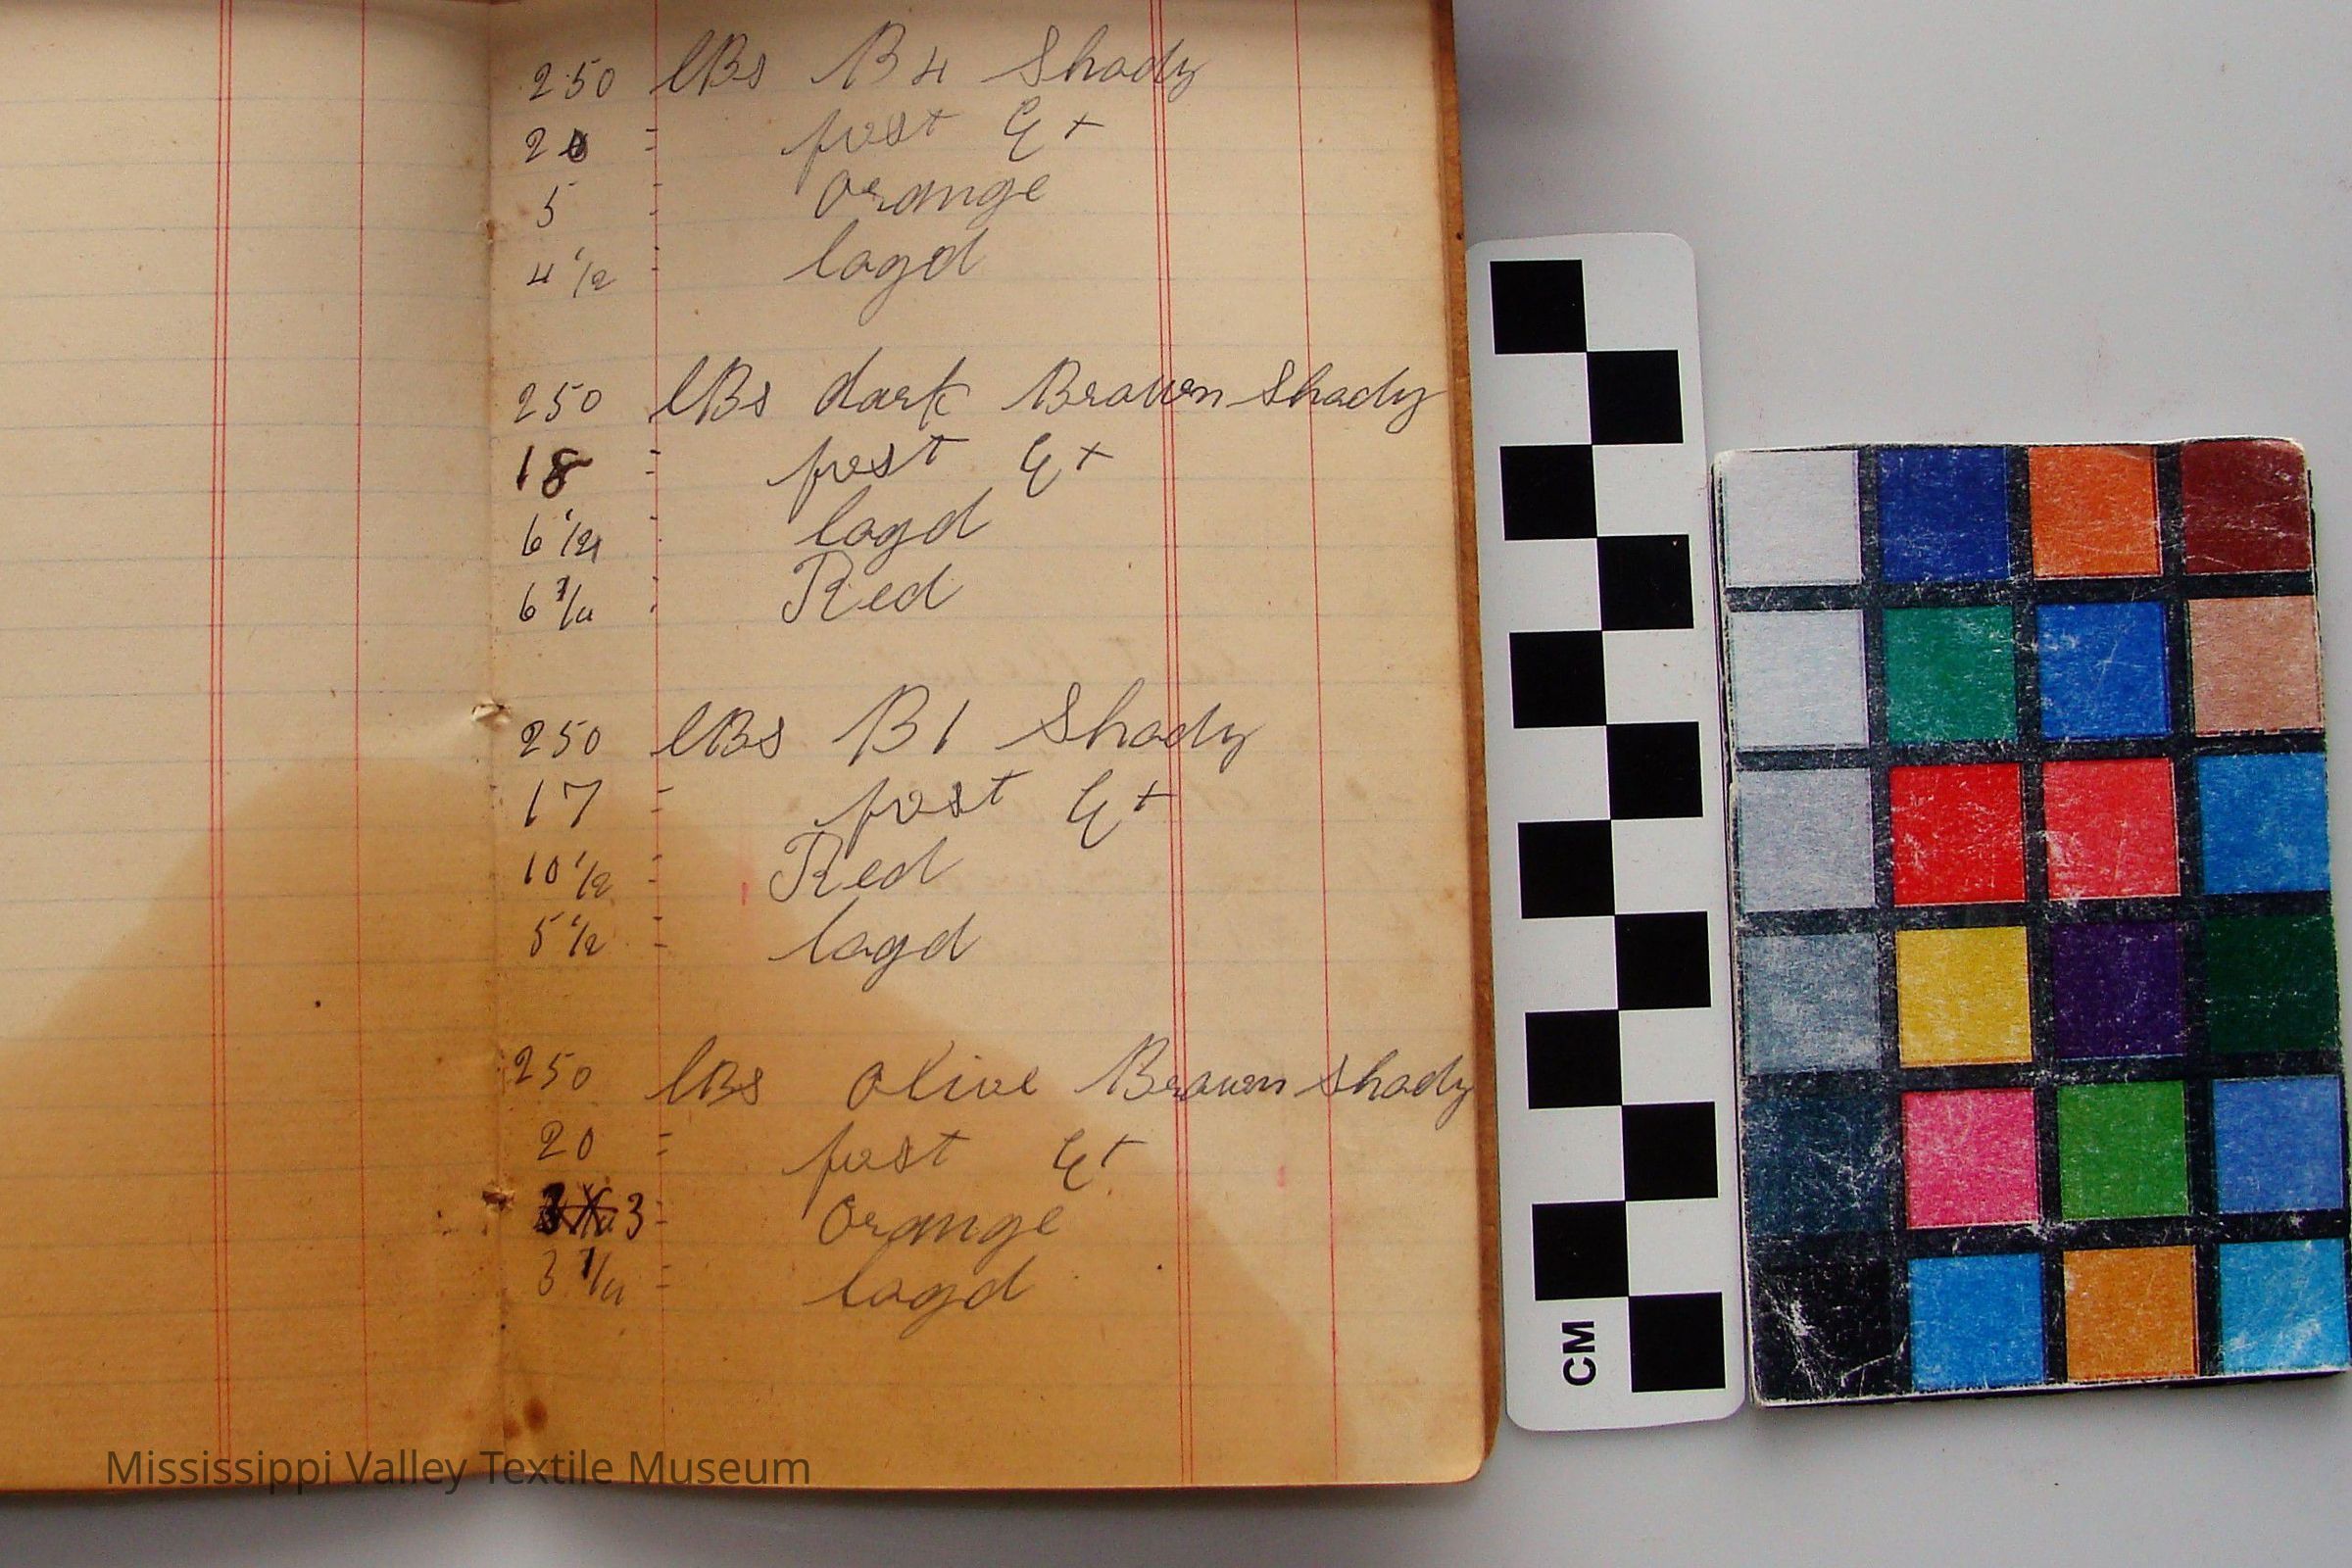 250 lBs B4 Shady
20 = fust Ex
5 = Orange
4 1/2 = logd
250 lBs dark Brown Shady
18 = fust Ex
6 1/2 = logd
6 1/4 = Red
250 lBs B1 Shady
17 = fust Ex
10 1/2 = Red
5 1/2 = logd
250 lBs Olive Brown Shady
20 = fust Ex
3 = Orange
3 1/4 = logd
CM
Mississippi Valley Textile Museum